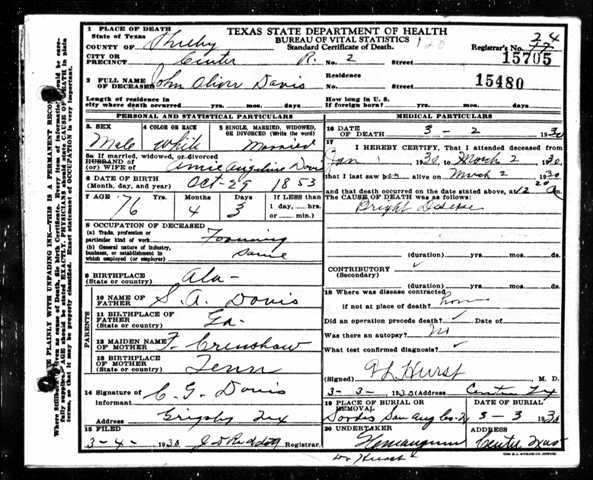 TEXAS STATE DEPARTMENT OF HEALTH
BUREAU OF VITAL STATISTICS
Standard Certificate of Death.
1 PLACE OF DEATH
State of Texas
COUNTY OF Shelby
Registrar's No. 24
15705
CITY OR PRECINCT Center R. No. 2 Street
2 FULL NAME OF DECEASED John Oliver Davis
Residence Street
15480
Length of residence in city where death occurred yrs. mos. days.
How long in U. S. if of foreign birth? yrs. mos. days.
PERSONAL AND STATISTICAL PARTICULARS
3. SEX Male
4 COLOR OR RACE White
5 SINGLE, MARRIED, WIDOWED, OR DIVORCED (Write the word) Married
5a If married, widowed, or divorced
HUSBAND OF (or) WIFE OF Annie Angeline Davis
6 DATE OF BIRTH (Month, day, and year) Oct-29 1853
7 AGE 76 Yrs. 4 Months 3 Days If LESS than 1 day, hrs. or min.
8 OCCUPATION OF DECEASED
(a) Trade, profession or particular kind of work Farming
(b) General nature of industry, business, or establishment in which employed (or employer) Same
9 BIRTHPLACE (State or country) Ala-
PARENTS
10 NAME OF FATHER S. A. Davis
11 BIRTHPLACE OF FATHER (State or country) Ga-
12 MAIDEN NAME OF MOTHER F. Crenshaw
13 BIRTHPLACE OF MOTHER (State or country) Tenn
14 Signature of informant C. G. Davis
Address Grigsby Tex
15 FILED 3-4- 1930 Registrar.
MEDICAL PARTICULARS
16 DATE OF DEATH 3 - 2 1930
17 I HEREBY CERTIFY, That I attended deceased from
Jan 1930, to March 2 1930
that I last saw him alive on March 2 1930
and that death occurred on the date stated above, at 12 20 a
The CAUSE OF DEATH was as follows:
Bright Disease
(duration) yrs. mos. days.
CONTRIBUTORY (Secondary)
(duration) yrs. mos. days.
18 Where was disease contracted if not at place of death? home
Did an operation precede death? Date of
Was there an autopsy? No
What test confirmed diagnosis?
(Signed) Hurst M. D.
3-3- 1930 (Address) Center Tex
19 PLACE OF BURIAL OR REMOVAL San Aug Co.
DATE OF BURIAL 3-3 1930
20 UNDERTAKER
ADDRESS Center Texas
Dr Hurst